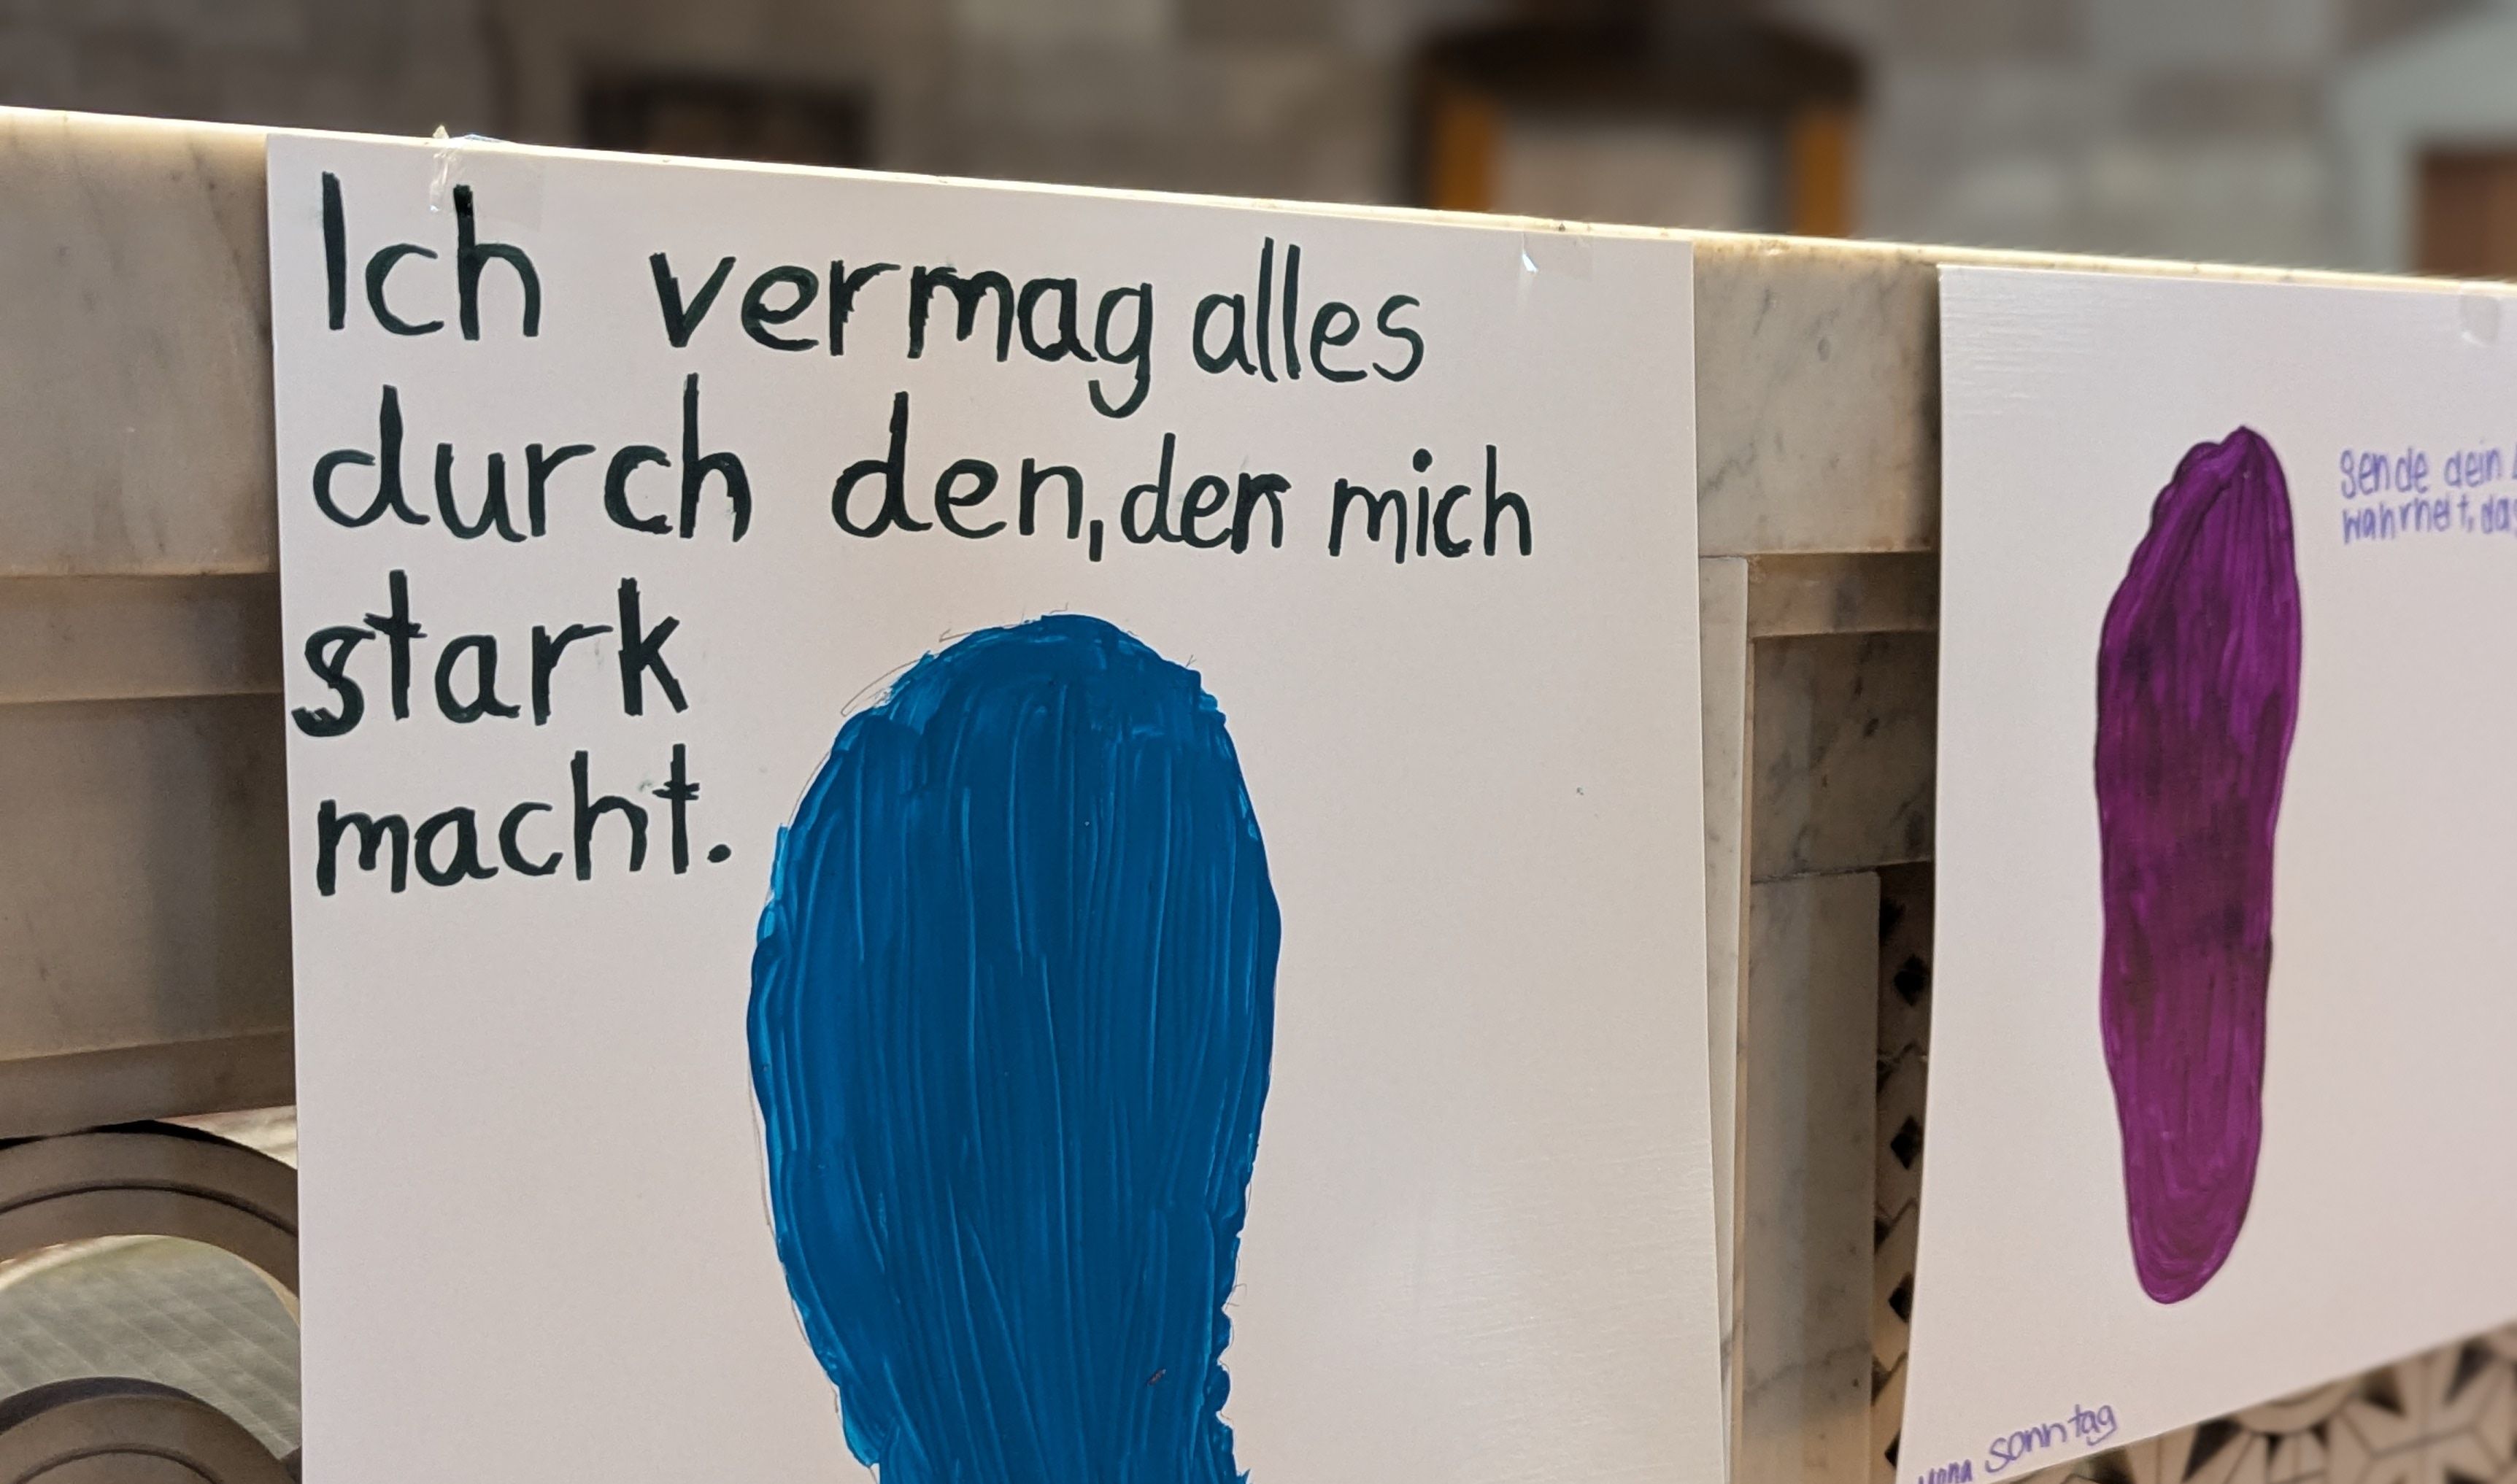 Ich vermag alles
durch den, der mich
stark
macht.
Sende dein
wahrheit, da
Sonntag